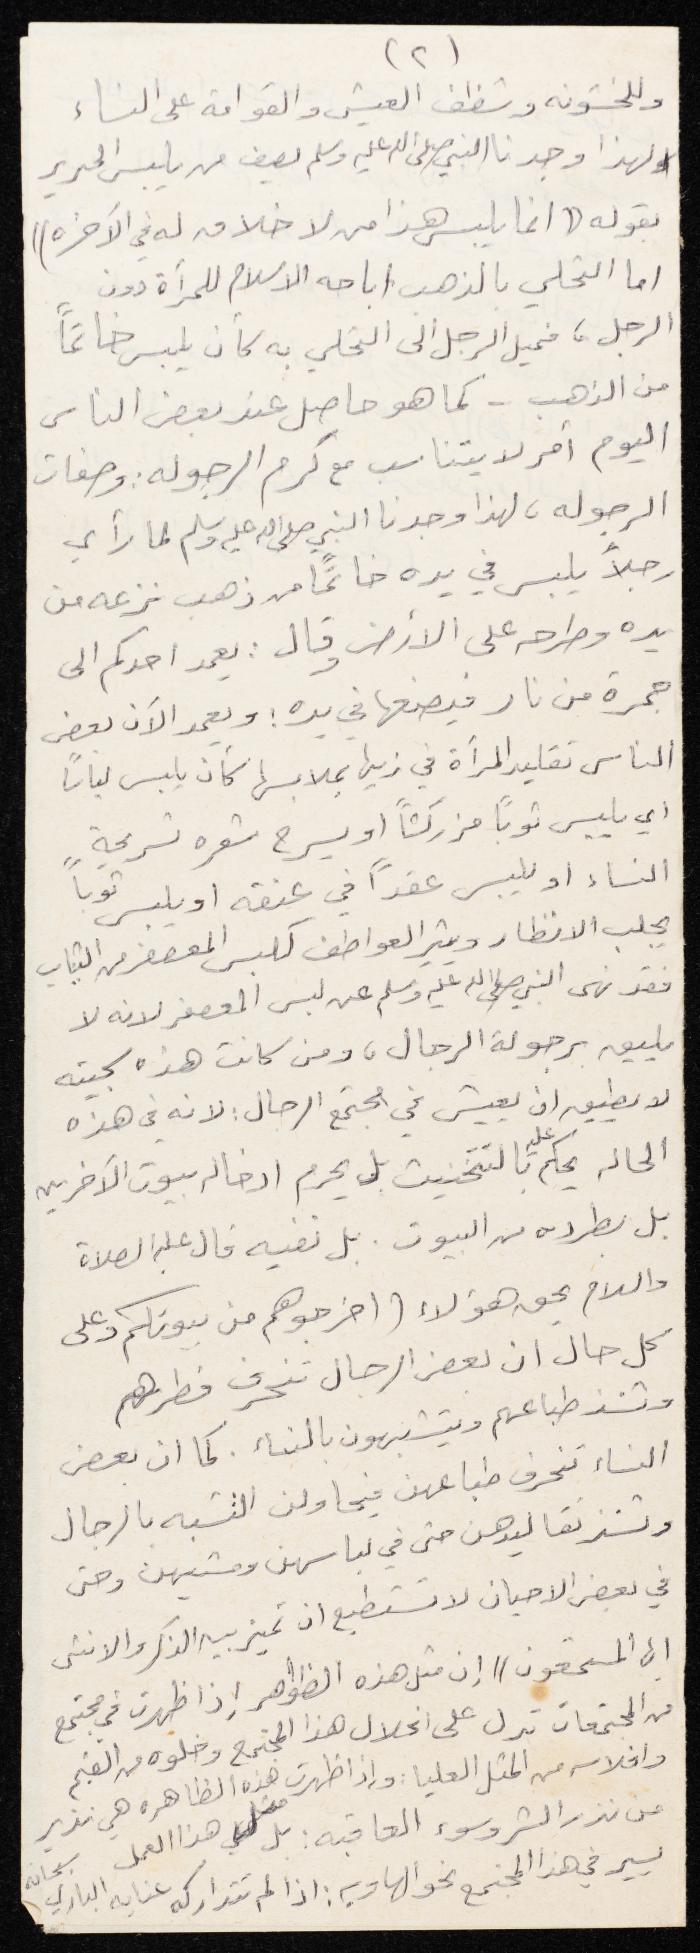 (٢)
وللخشونه وشظف العيش والقوامة على النساء
ولهذا وجدنا النبي صلى الله عليه وسلم يصف من يلبس الحرير
بقوله ((انما يلبس هذا من لا خلاق له في الآخره))
اما التحلي بالذهب اباحه الاسلام للمرأة دون
الرجل، فميل الرجل الى التحلي به كأن يلبس خاتمًا
من الذهب - كما هو حاصل عند بعض الناس
اليوم أمر لا يتناسب مع كرم الرجوله: وصفات
الرجوله، لهذا وجدنا النبي صلى الله عليه وسلم لما رأى
رجلاً يلبس في يده خاتمًا من ذهب نزعه من
يده وطرحه على الأرض وقال: يعمد احدكم الى
جمرة من نار فيضعها في يده: ويعمد الآن بعض
الناس تقليد المرأة في زيها بملابسها كأن يلبس لباسًا
اي يلبس ثوبًا مزركشًا او يسرح شعره تسريحة
النساء او يلبس عقدًا في عنقه او يلبس ثوبًا
يجلب الانظار ويثير العواطف كلبس المعصفر من الثياب
فقد نهى النبي صلى الله عليه وسلم عن لبس المعصفر لانه لا
يليق برجولة الرجال، ومن كانت هذه سجيته
لا يطيق ان يعيش في مجتمع الرجال: لانه في هذه
الحاله يحكم عليه بالتخنيث بل يحرم ادخاله بيوت الآخرين
بل بطرده من البيوت. بل نفيه قال عليه الصلاة
والسلام بحق هؤلاء (اخرجوهم من بيوتكم وعلى
كل حال ان بعض الرجال تنحرف فطرهم
وتشذ طباعهم ويتشبهون بالنساء. كما ان بعض
النساء تنحرف طباعهن فيحاولن التشبه بالرجال
وتشذ تقاليدهن حتى في لباسهن ومشيهن وحتى
في بعض الاحيان لا تستطيع ان تميز بين الذكر والانثى
إن مثل هذه الظواهر إذا ظهرت في مجتمع
من المجتمعات تدل على انحلال هذا المجتمع وخلوه من القيم
وافلاسه من المثل العليا: واذا ظهرت هذه الظاهره هي نذير
من نذر الشر وسوء العاقبه: بل مثل هذا العمل
يسير في هذا المجتمع نحو الهاويه: اذا لم تتداركه عنايه الباري سبحانه